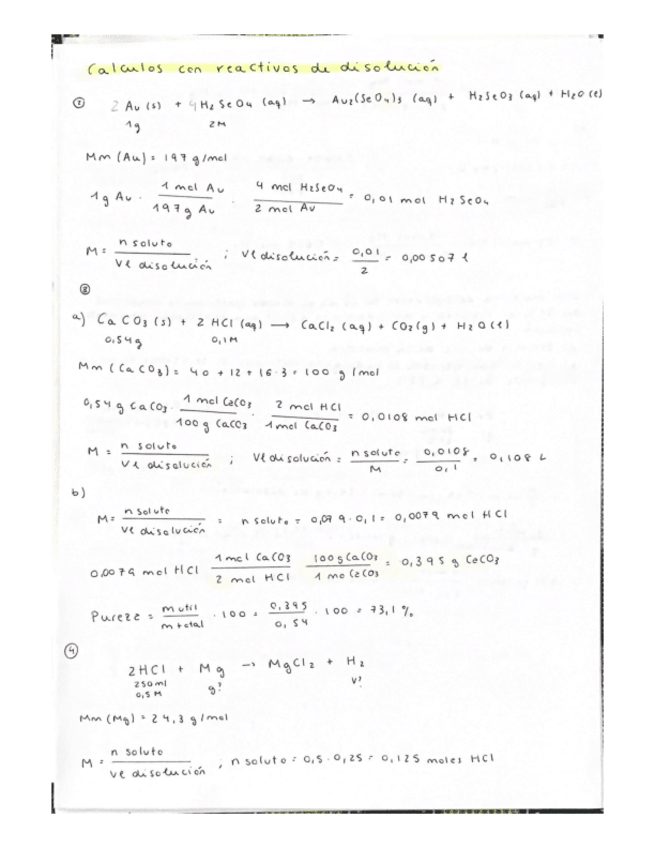 Calculos con reactivos de disolución
① 2 Au (s) + 4 H₂SeO₄ (aq) → Au₂(SeO₄)₃ (aq) + H₂SeO₃ (aq) + H₂O (l)
1g 2M
Mm (Au) = 197 g/mol
1 g Au · 1 mol Au / 197 g Au · 4 mol H₂SeO₄ / 2 mol Au = 0,01 mol H₂SeO₄
M = n soluto / Vl disolución ; Vl disolución = 0,01 / 2 = 0,00507 l
②
a) CaCO₃ (s) + 2 HCl (aq) → CaCl₂ (aq) + CO₂ (g) + H₂O (l)
0,54g 0,1M
Mm (CaCO₃) = 40 + 12 + 16·3 = 100 g/mol
0,54 g CaCO₃ · 1 mol CaCO₃ / 100 g CaCO₃ · 2 mol HCl / 1 mol CaCO₃ = 0,0108 mol HCl
M = n soluto / Vl disolución ; Vl disolución = n soluto / M = 0,0108 / 0,1 = 0,108 L
b)
M = n soluto / Vl disolución = n soluto = 0,079 · 0,1 = 0,0079 mol HCl
0,0079 mol HCl 1 mol CaCO₃ / 2 mol HCl 100 g CaCO₃ / 1 mo CaCO₃ = 0,395 g CaCO₃
Pureza = m util / m total · 100 = 0,395 / 0,54 · 100 = 73,1 %
④
2HCl + Mg → MgCl₂ + H₂
250ml g? V?
0,5 M
Mm (Mg) = 24,3 g/mol
M = n soluto / Vl disolución ; n soluto = 0,5 · 0,25 = 0,125 moles HCl